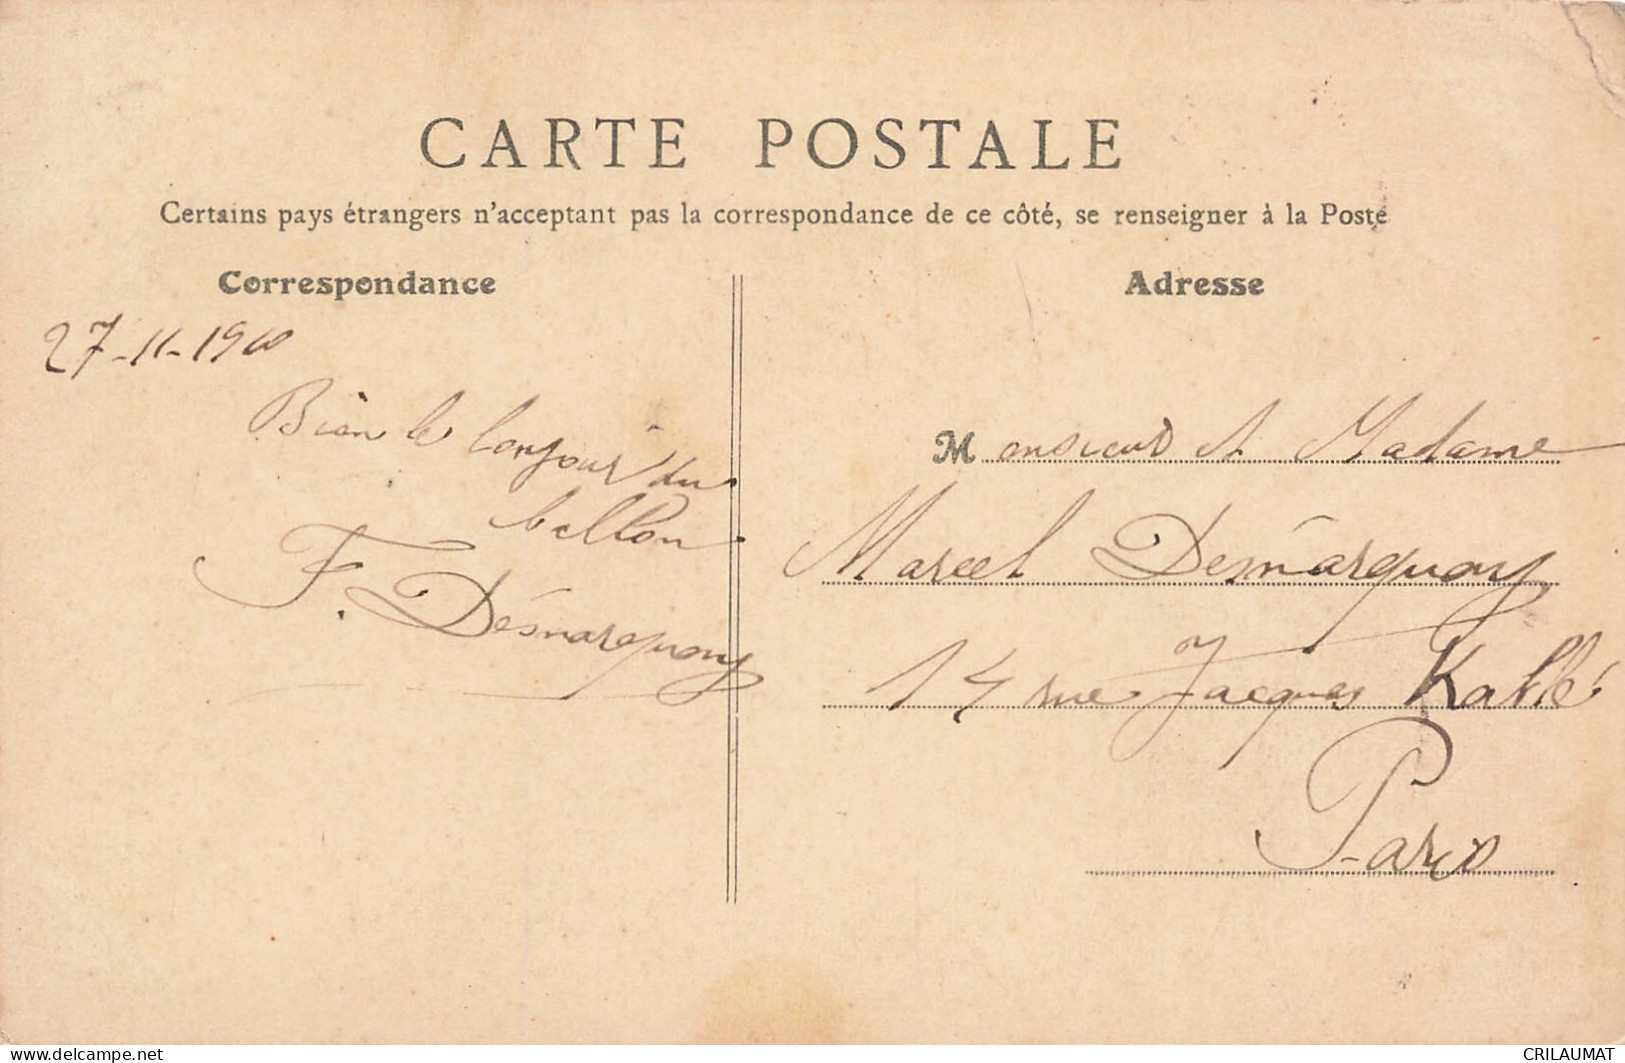 CARTE POSTALE
Certains pays étrangers n'acceptant pas la correspondance de ce côté, se renseigner à la Poste
Correspondance
Adresse
27-11-1910
Bien le bonjour du
ballon
F. Désmarquoy
Monsieur et Madame
Marcel Desmarquoy
14 rue Jacques Kablé
Paris
www.delcampe.net
CRILAUMAT